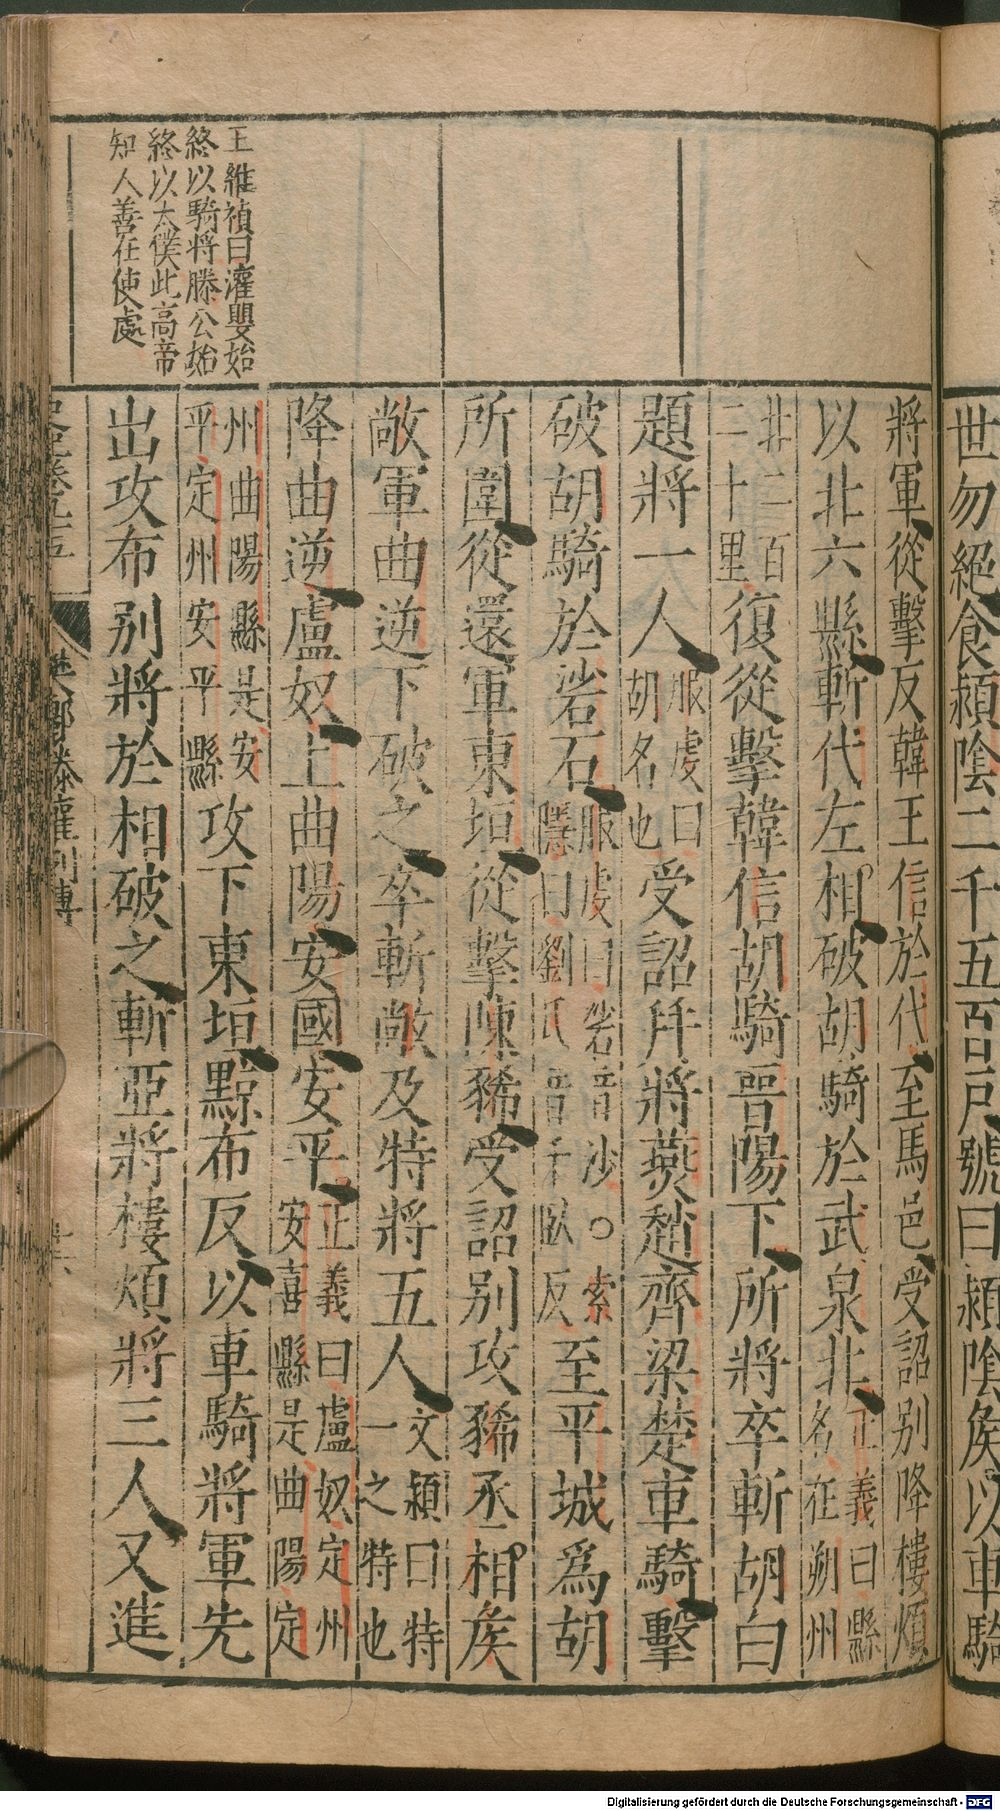 世勿絕食潁陰二千五百戶號曰潁陰矦以車騎
將軍從擊反韓王信於代至馬邑受詔別降樓煩
以北六縣斬代左相破胡騎於武泉北正義曰縣名在朔州
北二百二十里復從擊韓信胡騎晉陽下所將卒斬胡白
題將一人服虔曰胡名也受詔幷將燕趙齊梁楚車騎擊
破胡騎於硰石服虔曰硰音沙○索隱曰劉氏音千臥反至平城爲胡
所圍從還軍東垣從擊陳豨受詔別攻豨丞相矦
敞軍曲逆下破之卒斬敞及特將五人文穎曰特一之特也
降曲逆盧奴上曲陽安國安平正義曰盧奴定州安喜縣是曲陽定
州曲陽縣是安平定州安平縣攻下東垣黥布反以車騎將軍先
出攻布別將於相破之斬亞將樓煩將三人又進
王維禎曰灌嬰始
終以騎將滕公始
終以太僕此高帝
知人善任使處
史記卷九十五
樊酈滕灌列傳
Digitalisierung gefördert durch die Deutsche Forschungsgemeinschaft - DFG